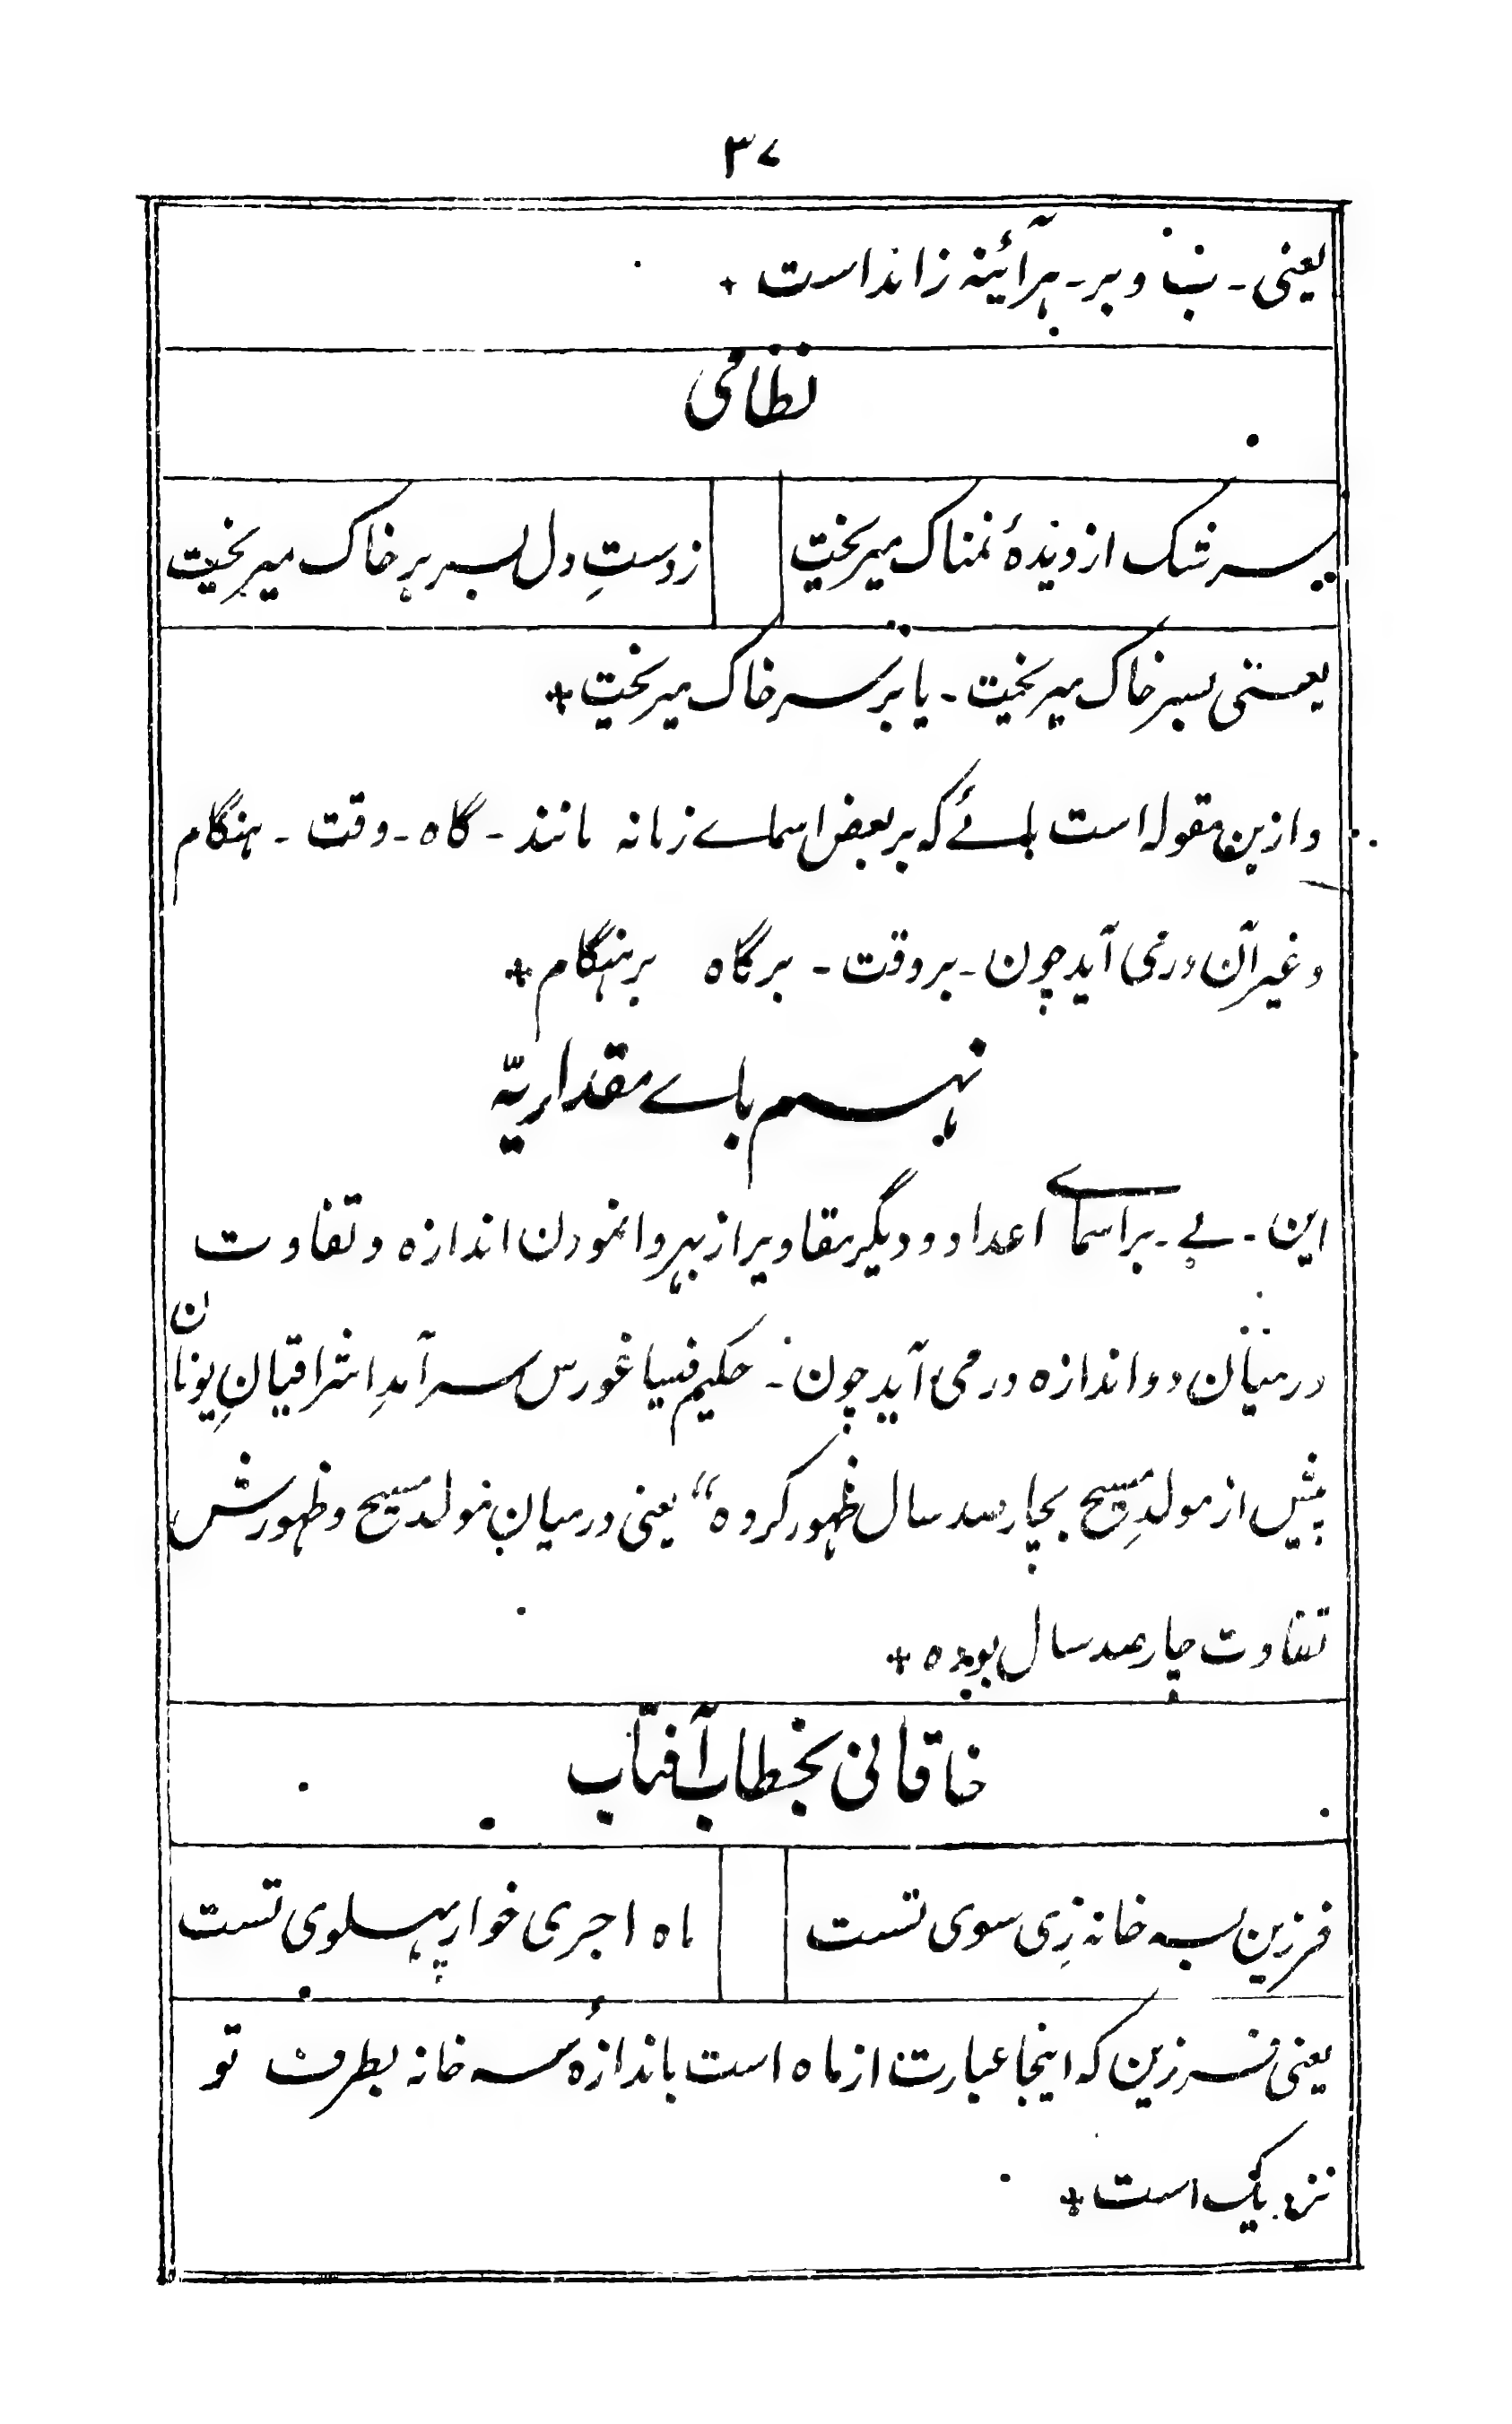 ۳۷
یعنی ۔ ب و بر ۔ ہر آئینہ زائد است +
نظامی
سرشک از دیدۂ نمناک میریخت    ز دستِ دل بسر بر خاک میریخت
یعنی بسر خاک میریخت ۔ یا بر سر خاک میریخت +
و ازین مقولہ است بائے کہ بر بعض اسماے زمانہ مانند ۔ گاہ ۔ وقت ۔ ہنگام
و غیر آن در می آید چون ۔ بر وقت ۔ بر گاہ بر ہنگام +
نہم باے مقداریّہ
این ۔ بے ۔ بر اسماے اعداد و دیگر مقادیر از بہر وا نمودن اندازہ و تفاوت
درمیان دو اندازہ در می آید چون ۔ حکیم فیساغورس سر آمدِ اشراقیانِ یونان
پیش از مولدِ مسیح بچار صد سال ظہور کردہ“ یعنی درمیان مولد مسیح و ظہورش
تفاوت چار صد سال بودہ +
خاقانی بخطاب آفتاب
فرزین بسہ خانہ زی سوی تست    ماہ اجری خوار پہلوی تست
یعنی فرزین کہ اینجا عبارت از ماہ است باندازۂ سہ خانہ بطرف تو
نزدیک است +